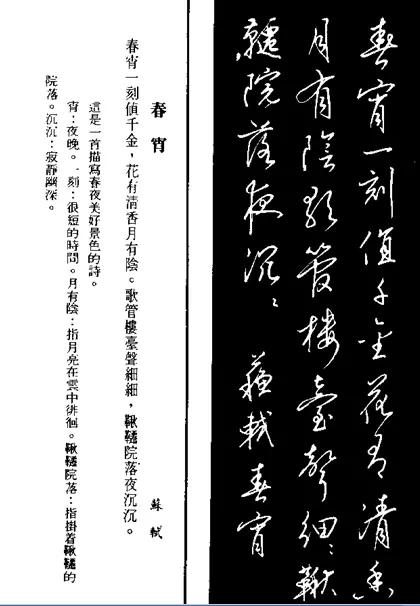 春宵一刻值千金花有清香
月有陰歌管樓臺聲細〻鞦
韆院落夜沉〻 蘇軾春宵
春宵 蘇軾
春宵一刻值千金，花有清香月有陰。歌管樓臺聲細細，鞦韆院落夜沉沉。
這是一首描寫春夜美好景色的詩。
宵：夜晚。一刻：很短的時間。月有陰：指月亮在雲中徘徊。鞦韆院落：指掛着鞦韆的
院落。沉沉：寂靜幽深。